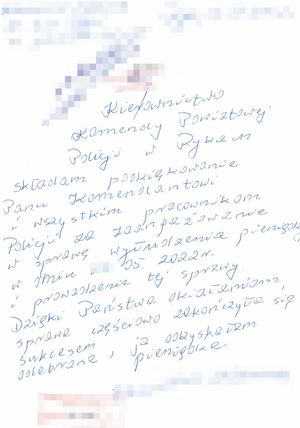 Kierownictwo
Komendy Powiatowej
Policji w Rykach
składam podziękowanie
Panu Komendantowi
i wszystkim pracownikom
Policji za zaangażowanie
w sprawę wyłudzenia pieniędzy
w dniu 05.2022r.
i prowadzenie tej sprawy
Dzięki Państwa działaniom,
sprawa częściowo zakończyła się
sukcesem, ja odzyskałam
odebrane pieniądze